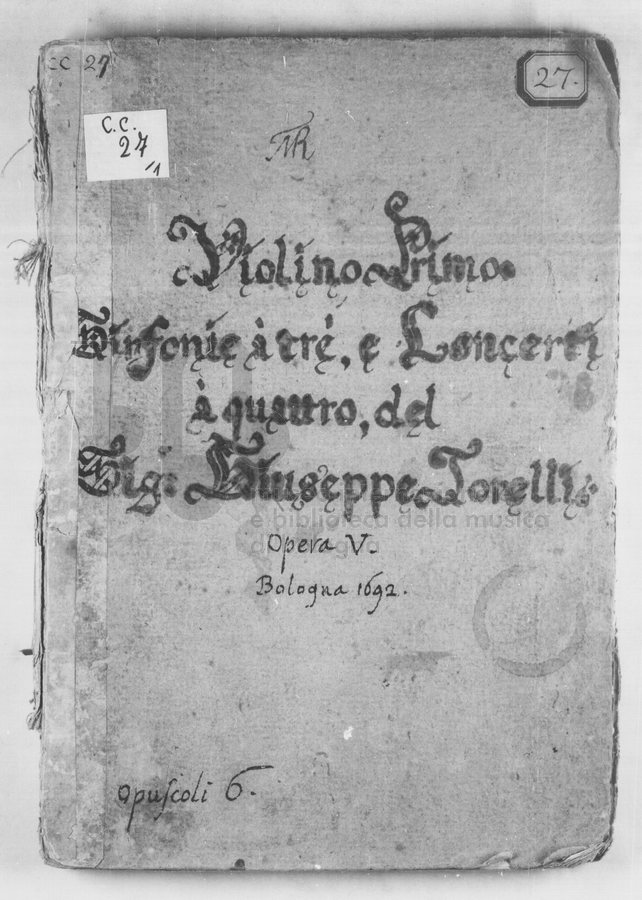 CC 27
27.
C.C.
27
/1
Violino Primo.
Sinfonie à trè, e Concerti
à quattro, del
Sig: Giuseppe Torelli.
e biblioteca della musica
Opera V.
Bologna 1692.
opuscoli 6.